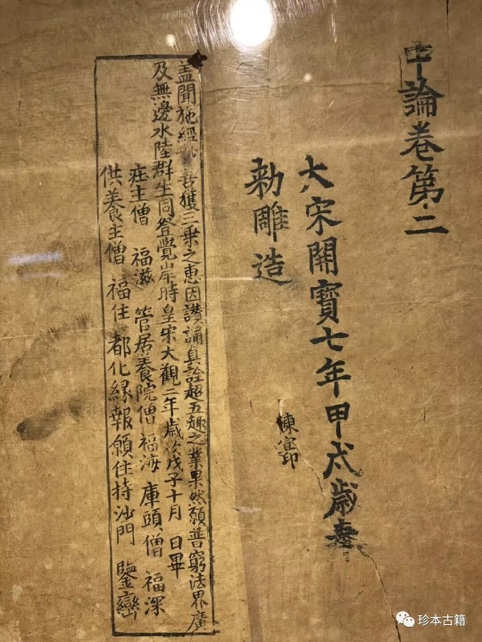 中論卷第二
大宋開寶七年甲戌歲奉
勅雕造
陳宻印
盖聞施經妙善獲三乗之惠因讃誦真詮超五趣之業果然願普窮法界廣
及無邊水陸群生同登覺岸時皇宋大觀二年歲次戊子十月 日畢
庄主僧 福滋 管居養院僧 福海 庫頭僧 福深
供養主僧 福住 都化緣報願住持沙門 鑒巒
珍本古籍